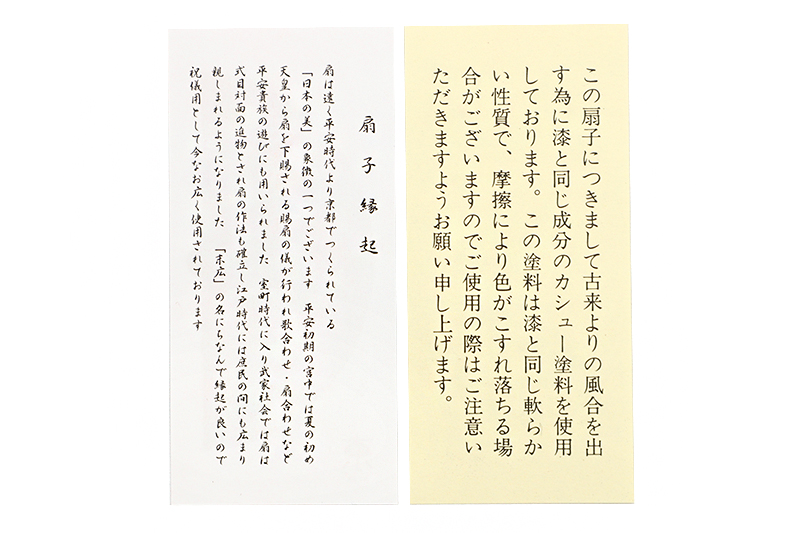 この扇子につきまして古来よりの風合を出
す為に漆と同じ成分のカシュー塗料を使用
しております。この塗料は漆と同じ軟らか
い性質で、摩擦により色がこすれ落ちる場
合がございますのでご使用の際はご注意い
ただきますようお願い申し上げます。
扇子縁起
扇は遠く平安時代より京都でつくられている
「日本の美」の象徴の一つでございます 平安初期の宮中では夏の初め
天皇から扇を下賜される賜扇の儀が行われ歌合わせ・扇合わせなど
平安貴族の遊びにも用いられました 室町時代に入り武家社会では扇は
式目対面の進物とされ扇の作法も確立し江戸時代には庶民の間にも広まり
親しまれるようになりました 「末広」の名にちなんで縁起が良いので
祝儀用として今なお広く使用されております